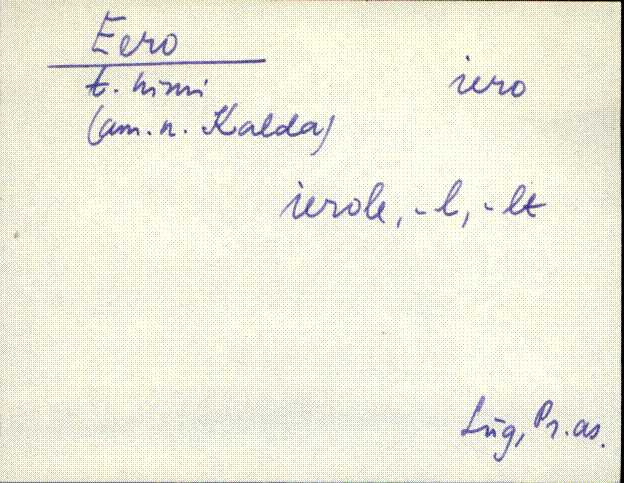 Eero iero
t. nimi
(am. n. Kalda)
ierole, -l, -lt
Lüg, Pr. as.